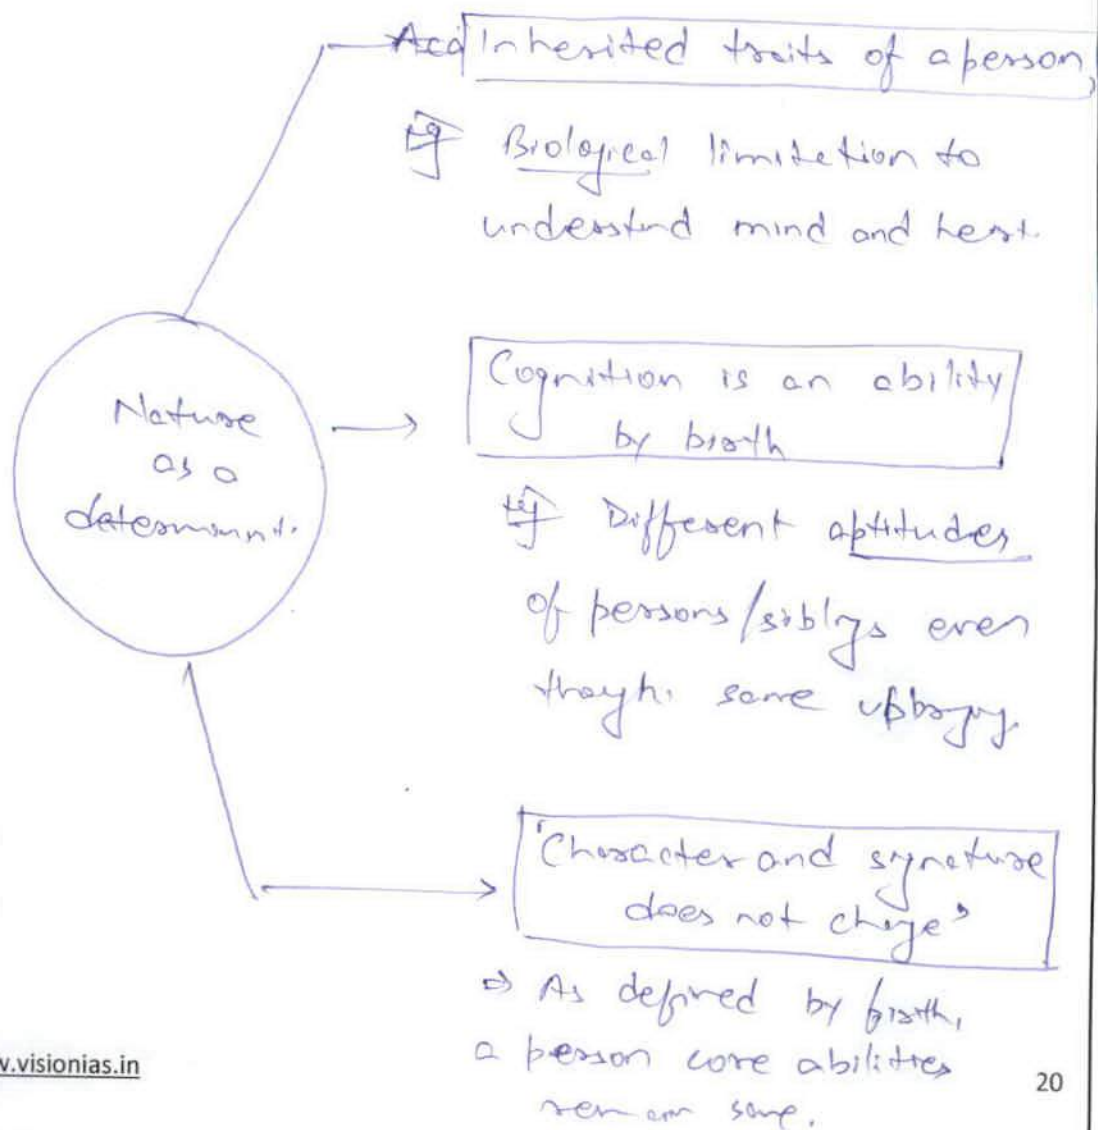 Acq Inherited traits of a person,
Eg Biological limitation to
understand mind and heart.
Cognition is an ability
by birth
Nature
as a
determinant.
Eg Different aptitudes
of persons/siblings even
though same upbringing
'Character and signature
does not change'
⇒ As defined by birth,
a person core abilities
remain same.
w.visionias.in
20